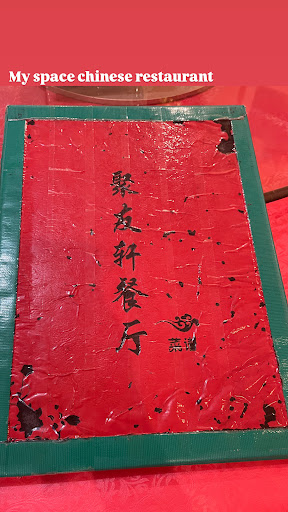 My space chinese restaurant
聚友轩餐厅
菜谱